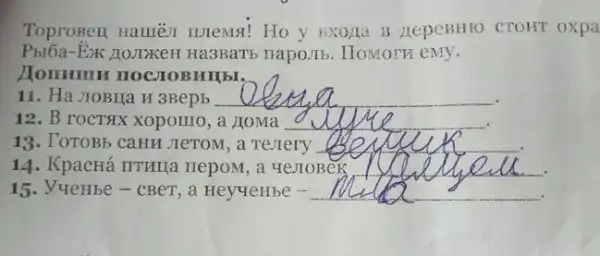 Торговец нашёл племя! Но у входа в деревню стоит охра
Рыба-Ёж должен назвать пароль. Помоги ему.
Допиши пословицы.
11. На ловца и зверь Овца.
12. В гостях хорошо, а дома луче.
13. Готовь сани летом, а телегу Велик.
14. Краснá птица пером, а человек палцем.
15. Ученье – свет, а неученье – Мла.